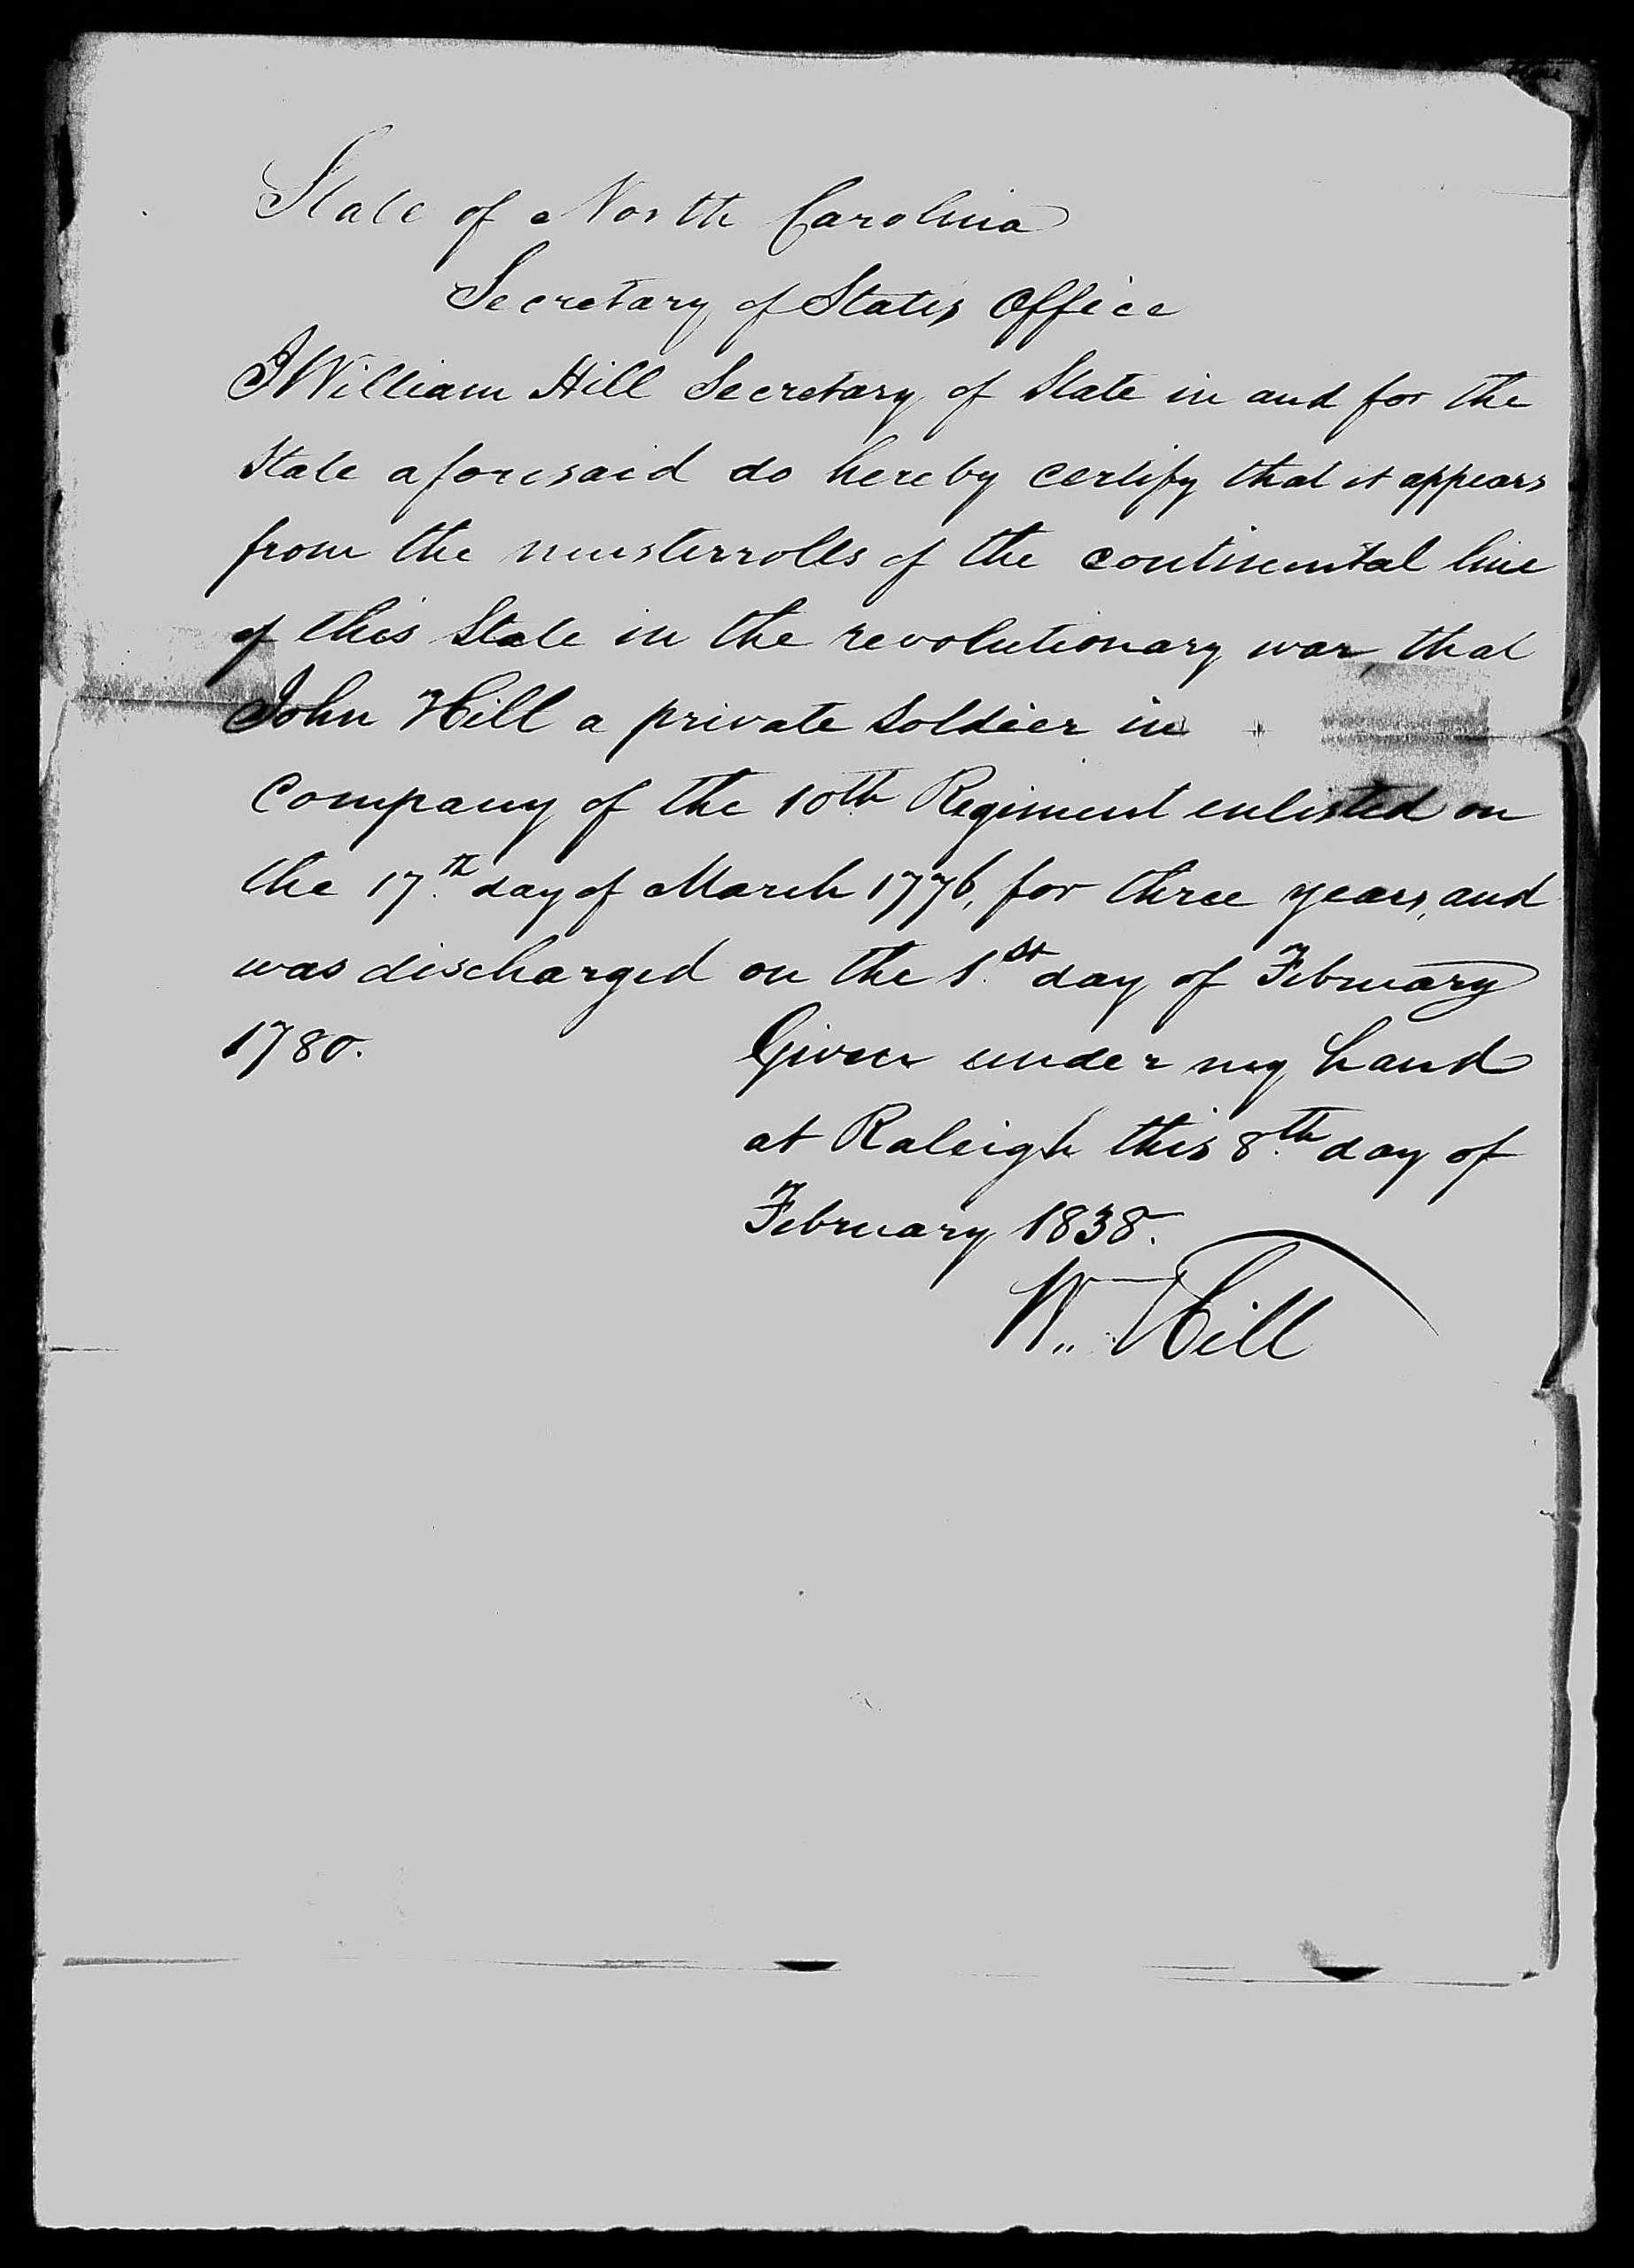 State of North Carolina
Secretary of States Office
I William Hill Secretary of State in and for the
State aforesaid do hereby certify that it appears
from the musterrolls of the continental line
of this State in the revolutionary war, that
John Hill a private soldier in
Company of the 10th Regiment enlisted on
the 17th day of March 1776, for three years, and
was discharged on the 1st day of February
1780. Given under my hand
at Raleigh this 8th day of
February 1838.
Wm Hill